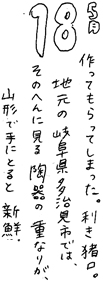 5月
18
作ってもらってしまった。利き猪口。
地元の岐阜県多治見市では、
そのへんに見る陶器の重なりが、
山形で手にとると新鮮。